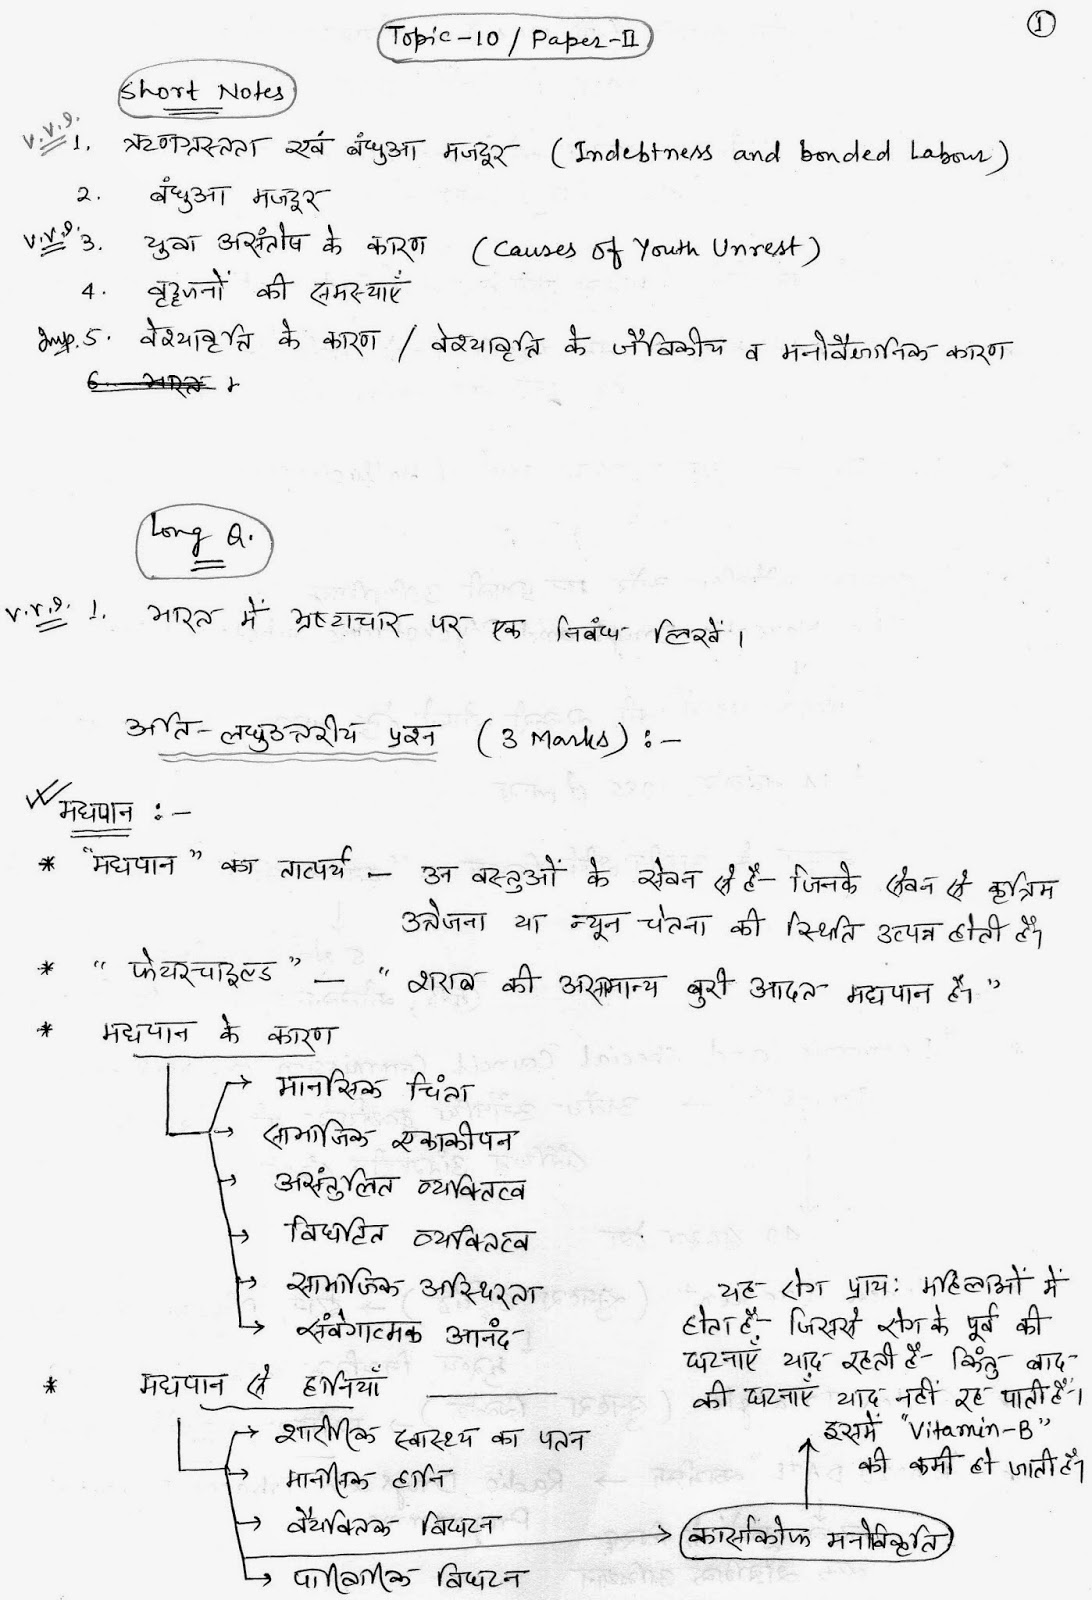 1
Topic-10 / Paper-II
Short Notes
V.V.I. 1. ऋणग्रस्तता एवं बंधुआ मजदूर (Indebtness and bonded Labour)
2. बंधुआ मजदूर
V.V.I. 3. युवा असंतोष के कारण (Causes of Youth Unrest)
4. वृद्धजनों की समस्याएँ
Imp. 5. वेश्यावृत्ति के कारण / वेश्यावृत्ति के जैविकीय व मनोवैज्ञानिक कारण
6. भारत
Long Q.
V.V.I. 1. भारत में भ्रष्टाचार पर एक निबंध लिखें।
अति-लघुउत्तरीय प्रश्न (3 Marks) :-
मद्यपान :-
* "मद्यपान" का तात्पर्य - उन वस्तुओं के सेवन से है- जिनके सेवन से कृत्रिम
उत्तेजना या न्यून चेतना की स्थिति उत्पन्न होती है।
* "फेयरचाइल्ड" - "शराब की असामान्य बुरी आदत मद्यपान है।"
* मद्यपान के कारण
→ मानसिक चिंता
→ सामाजिक एकाकीपन
→ असंतुलित व्यक्तित्व
→ विघटित व्यक्तित्व
→ सामाजिक अस्थिरता
→ संवेगात्मक आनंद
* मद्यपान से हानियाँ
→ शारीरिक स्वास्थ्य का पतन
→ मानसिक हानि
→ वैयक्तिक विघटन
→ पारिवारिक विघटन
→ कार्साकोफ मनोविकृति
यह रोग प्राय: महिलाओं में
होता है- जिससे रोग के पूर्व की
घटनाएँ याद रहती है- किंतु बाद
की घटनाएँ याद नहीं रह पाती है।
इसमें "Vitamin-B"
की कमी हो जाती है।